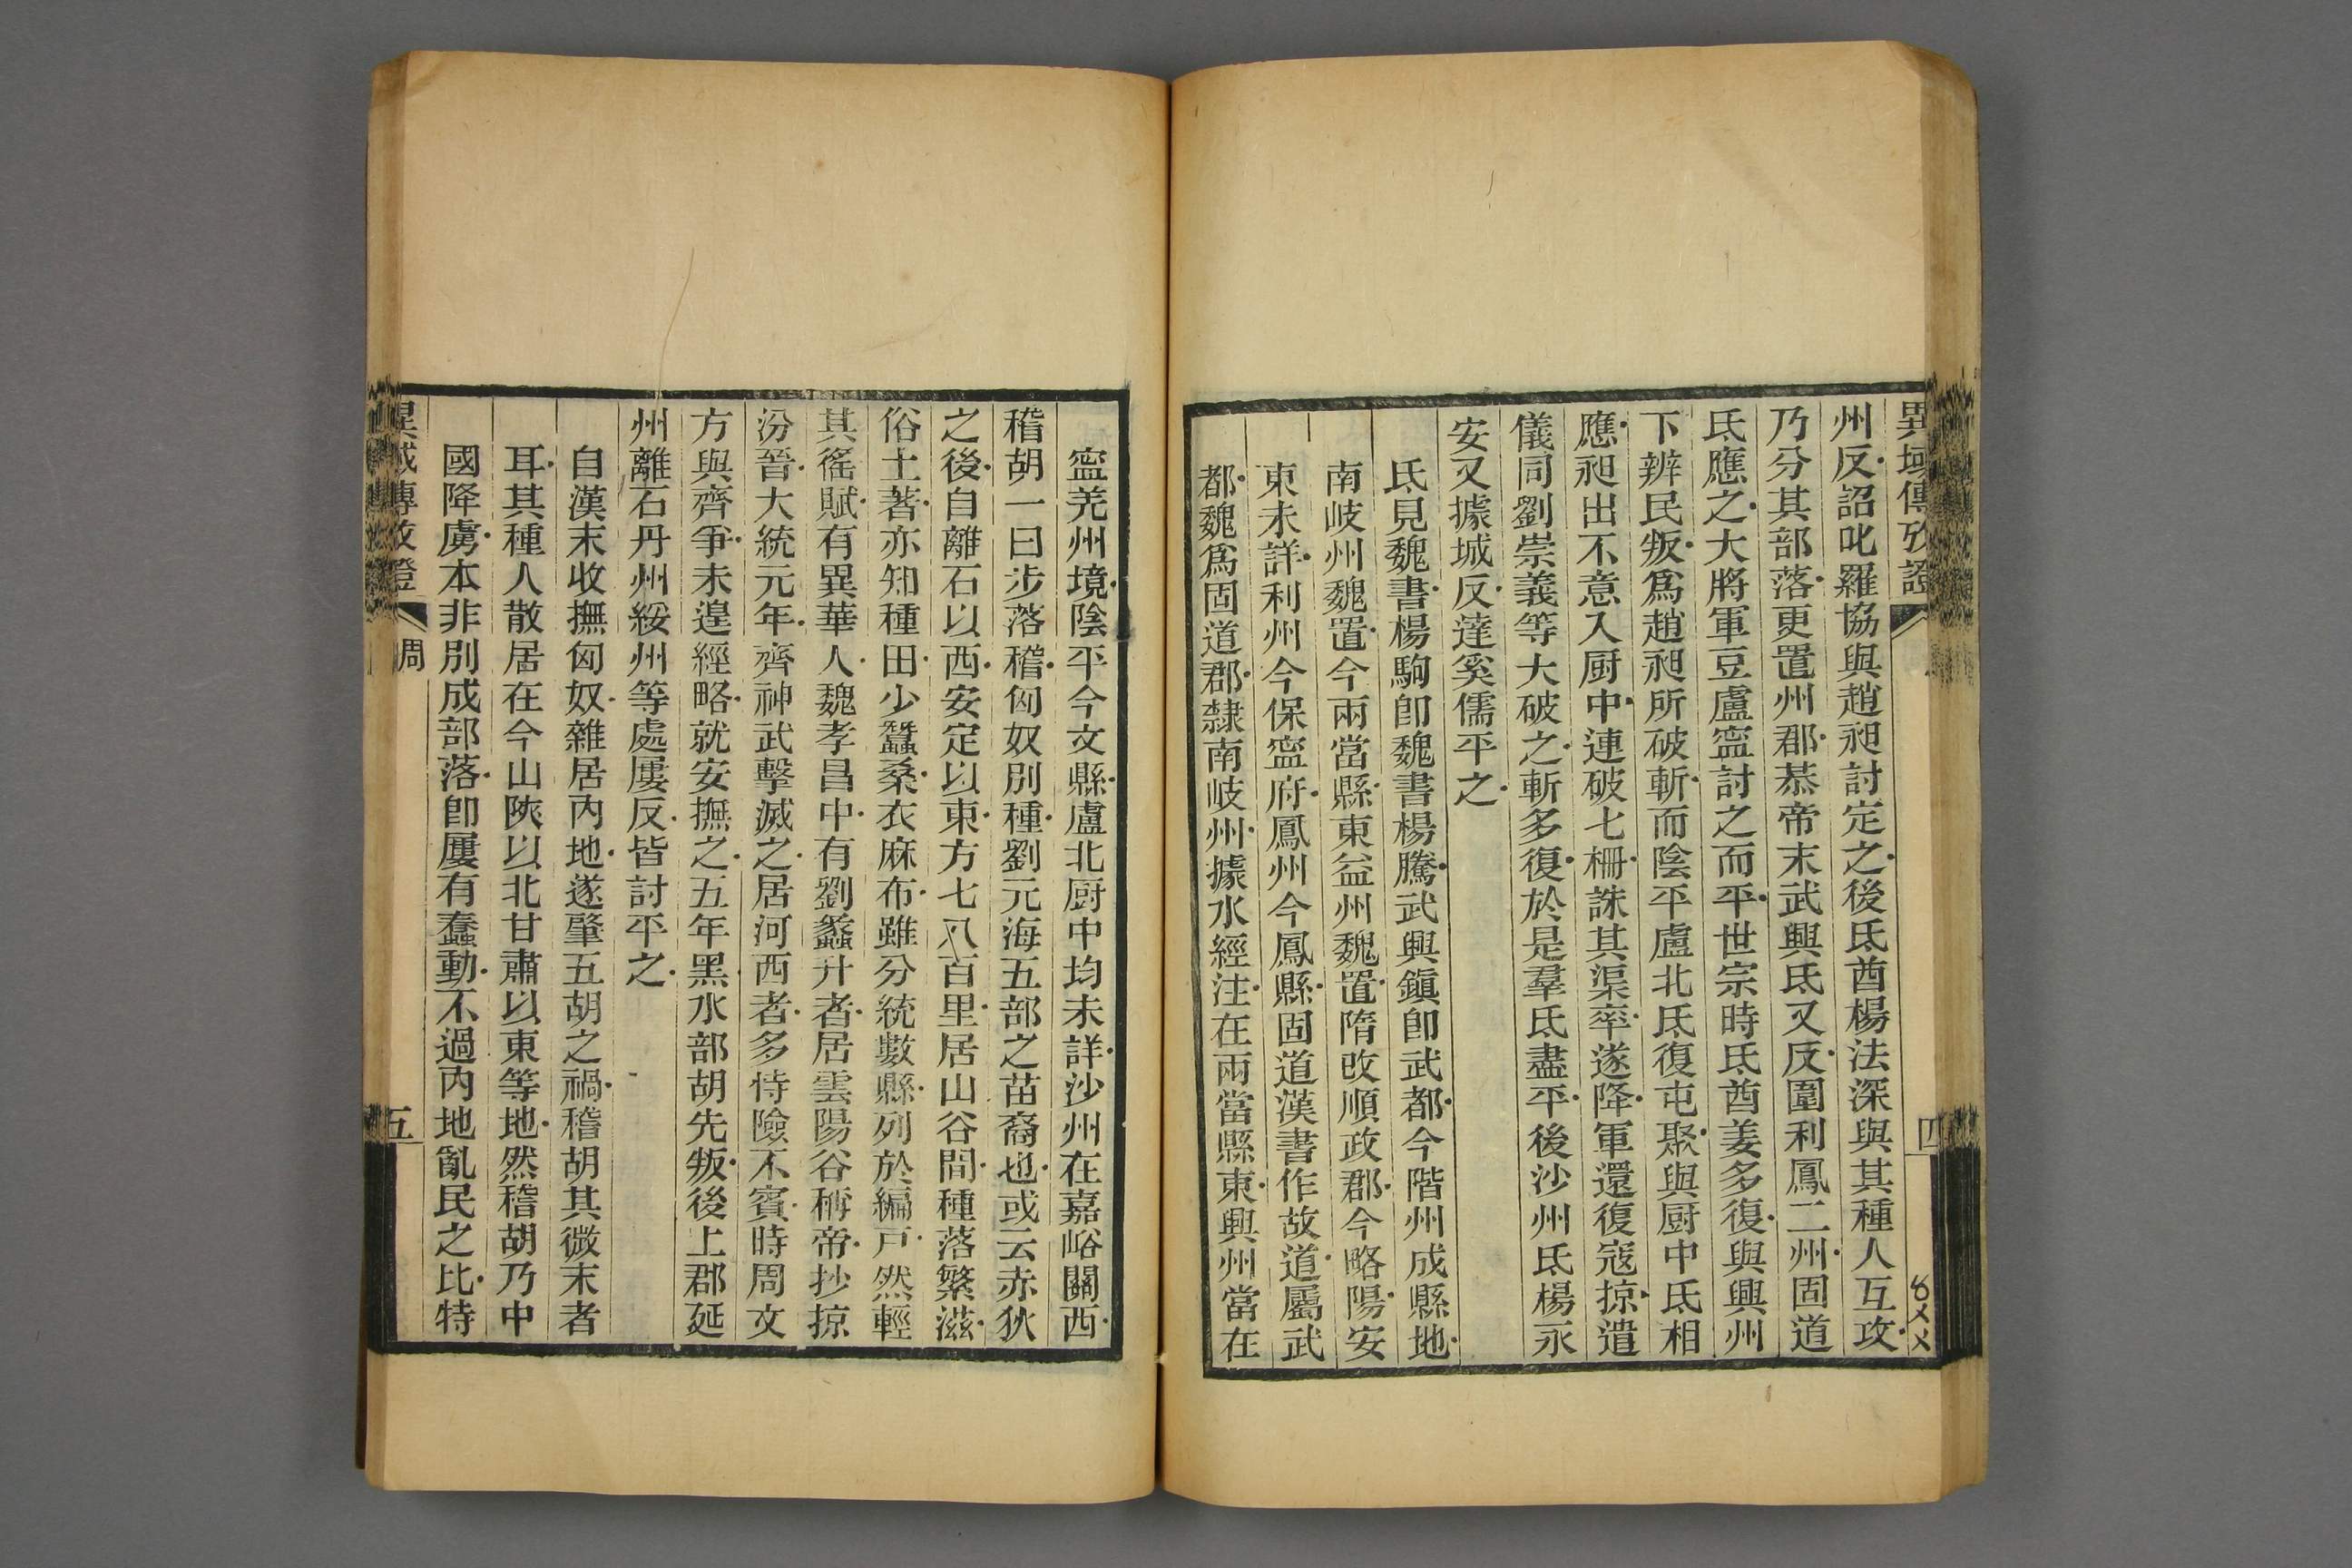 異域傳攷證
四
州反詔叱羅協與趙昶討定之後氐酋楊法深與其種人互攻
乃分其部落更置州郡恭帝末武興氐又反圍利鳳二州固道
氐應之大將軍豆盧寍討之而平世宗時氐酋姜多復與興州
下辨民叛爲趙昶所破斬而陰平盧北氐復屯聚與厨中氐相
應昶出不意入厨中連破七柵誅其渠率遂降軍還復寇掠遣
儀同劉崇義等大破之斬多復於是羣氐盡平後沙州氐楊永
安又據城反達奚儒平之
氐見魏書楊駒卽魏書楊騰武興鎭卽武都今階州成縣地
南岐州魏置今兩當縣東益州魏置隋改順政郡今略陽安
東未詳利州今保寍府鳳州今鳳縣固道漢書作故道屬武
都魏爲固道郡隸南岐州據水經注在兩當縣東興州當在
寍羌州境陰平今文縣盧北厨中均未詳沙州在嘉峪關西
稽胡一曰步落稽匈奴別種劉元海五部之苗裔也或云赤狄
之後自離石以西安定以東方七八百里居山谷間種落繁滋
俗土著亦知種田少蠶桑衣麻布雖分統數縣列於編戸然輕
其徭賦有異華人魏孝昌中有劉蠡升者居雲陽谷稱帝抄掠
汾晉大統元年齊神武擊滅之居河西者多恃險不賓時周文
方與齊爭未遑經略就安撫之五年黑水部胡先叛後上郡延
州離石丹州綏州等處屢反皆討平之
自漢末收撫匈奴雜居內地遂肇五胡之禍稽胡其微末者
耳其種人散居在今山陝以北甘肅以東等地然稽胡乃中
國降虜本非別成部落卽屢有蠢動不過內地亂民之比特
異域傳攷證
周
五